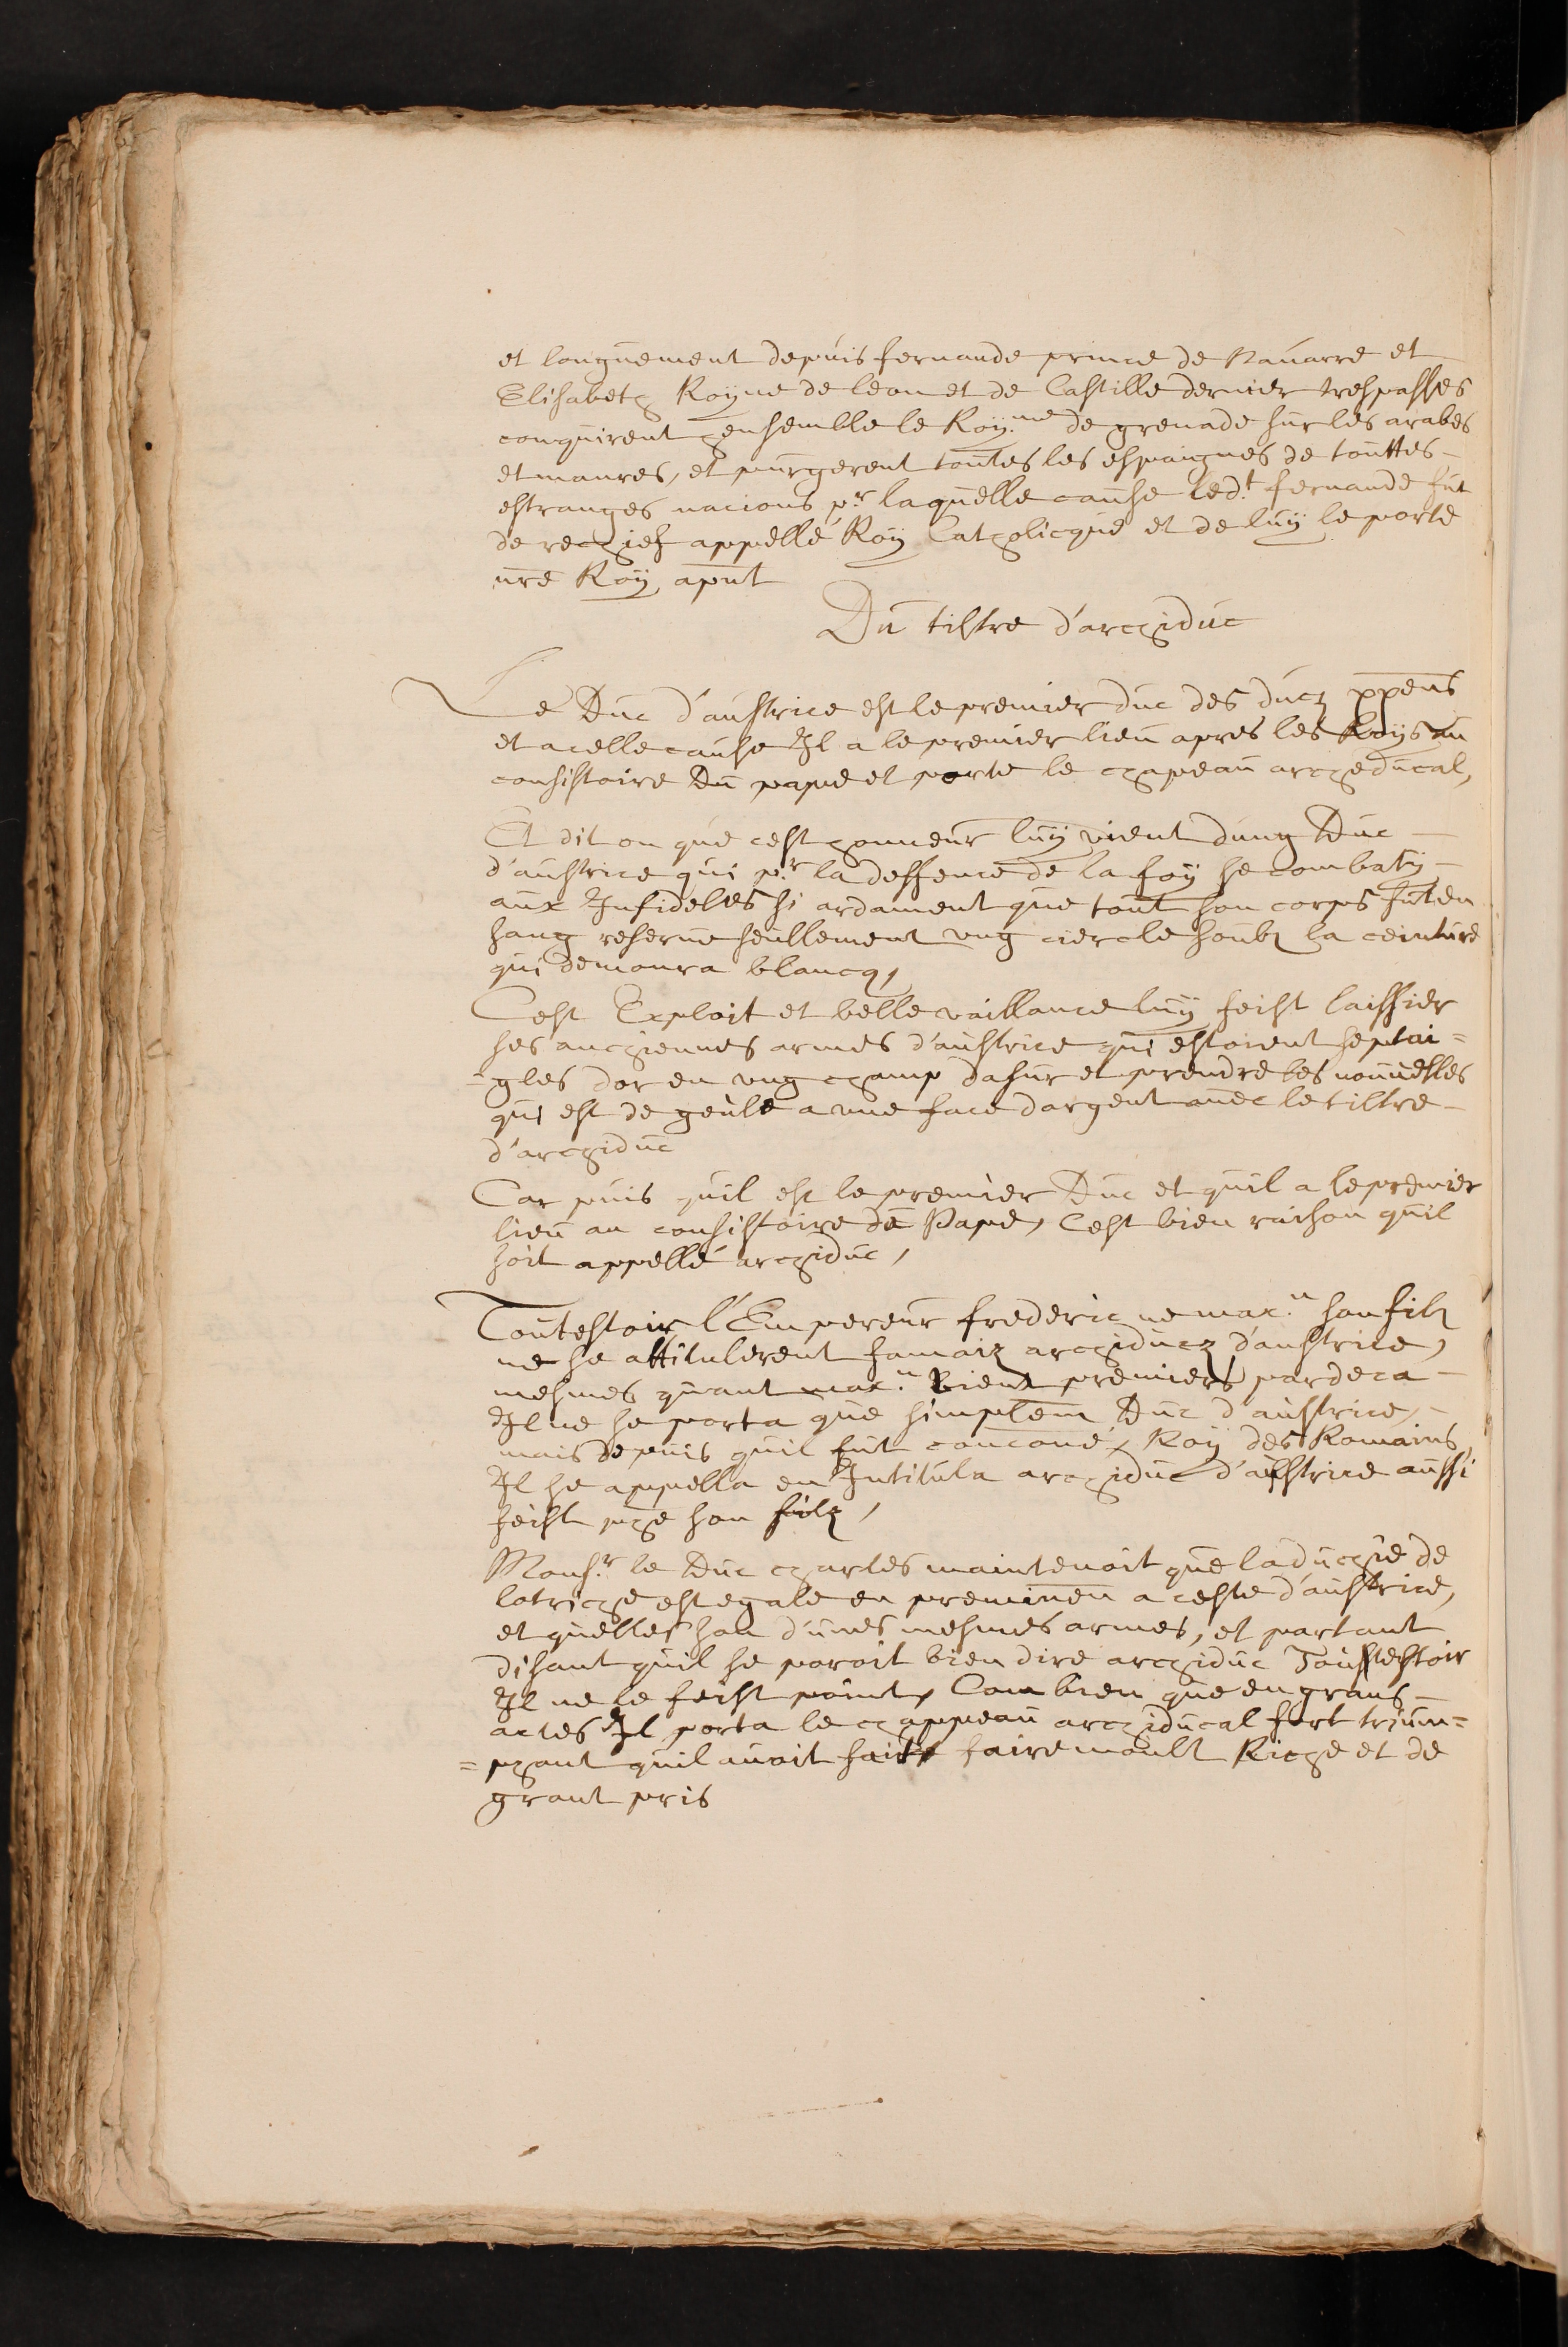 et longuement depuis fernande prince de Navarre et
Elisabeth Royne de leon et de Castille dernier trespasses
conquirent hensemble le Roy.me de grenade sur les arabes
et maures, et purgerent toutes les espaignes de touttes
estranges nacions pr laquelle cause led.t fernande fut
de rechief appellé Roy Catholicque et de luy le porte
nre Roy apnt
Du tiltre d'archiduc
Le Duc d'austrice est le premier duc des ducz xppens
et a celle cause Il a le premier lieu apres les Roys au
consistoire Du pape et porte le chapeau archeducal,
Et dit on que cest honneur luy vient dung Duc
d'austrice qui pr la deffence de la foy se combaty
aux Infideles si ardament que tout son corps fut en
sang reserve seullement ungciercle soubz la ceinture
qui demoura blancq,
Cest Exploit et belle vaillance luy feist laissier
ses anchiennes armes d'austrice qui estoient sept ai=
=gles dor en ung champ dasur et prendre les nouvelles
qui est de geule a une face dargent avec le tiltre
d'archiduc
Car puis quil est le premier Duc et quil a le premier
lieu au consistoire du Pape, Cest bien raison quil
soit appellé archiduc,
Toutesfoix l'Empereur frederic ne max.n son filz
ne se attitulerent Jamaiz archiducz d'austrice,
mesmes quant max.n vient premiers par deca
Il ne se porta que simplem Duc d'austrice,
mais depuis quil fut couroné, Roy des Romains,
Il se appella en Intitula archiduc d'austrice aussi
feist phe son filz,
Mons.r le Duc charles maintenoit que la duchie de
lotriche est egale en preminen a ceste d'austrice,
et quelles son d'unes mesmes armes, et partant
disant quil se poroit bien dire archiduc Touttesfoix
Il ne le feist point, Com bien que en grans
actes Il porta le chappeau archiducal fort trium=
=phant quil avoit fait faire moult Riche et de
grant pris